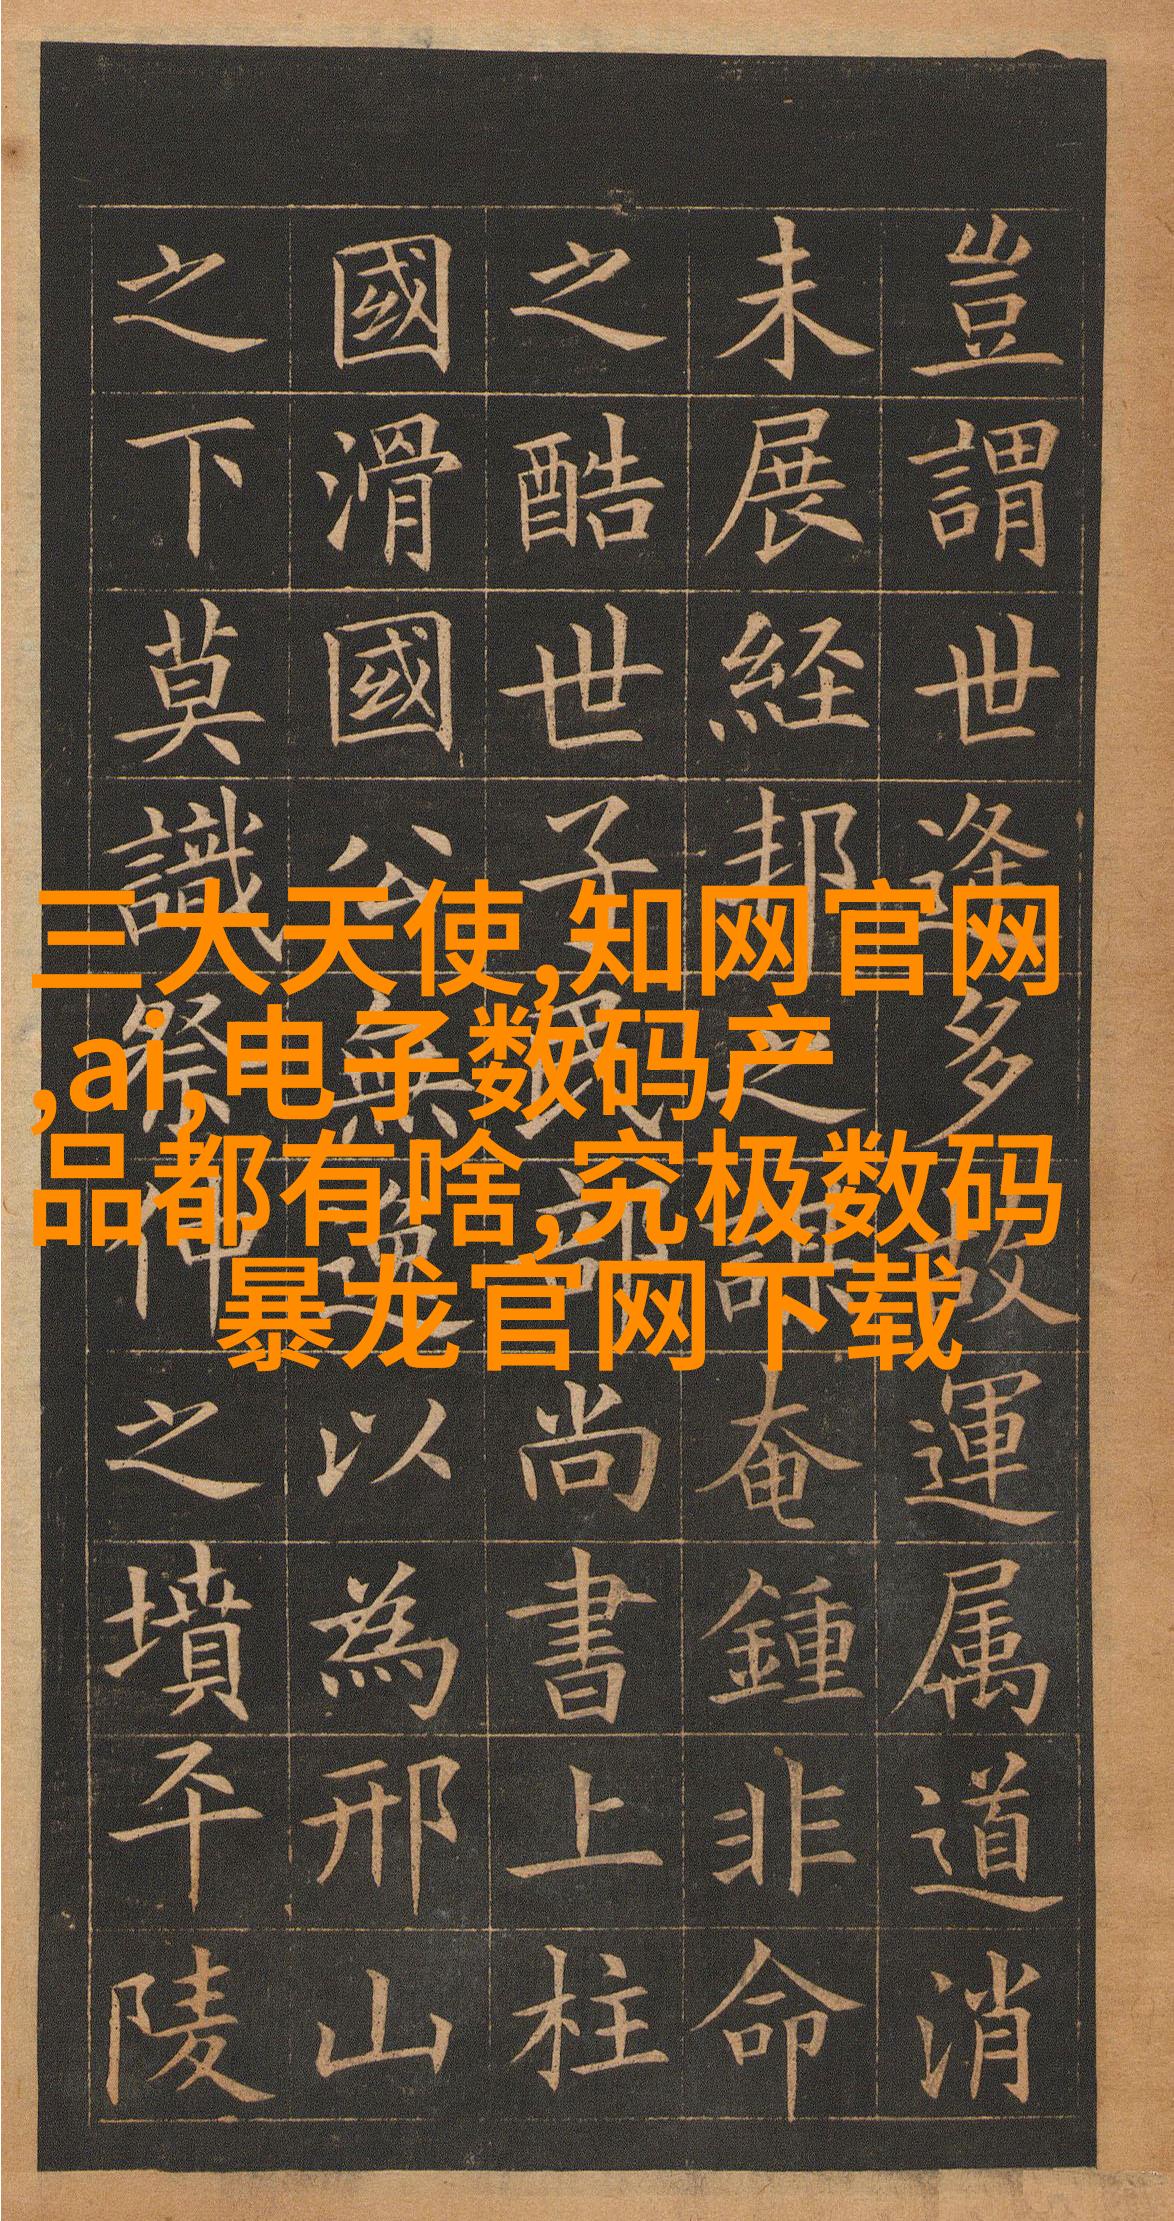 豈謂世逢多故運属道消
未展経邦之謀奄鍾非命
之酷世子民部尚書上柱
國滑國公無逸以為邢山
之下莫識祭仲之墳平陵
三大天使,知网官网
,ai,电子数码产
品都有啥,究极数码
暴龙官网下载